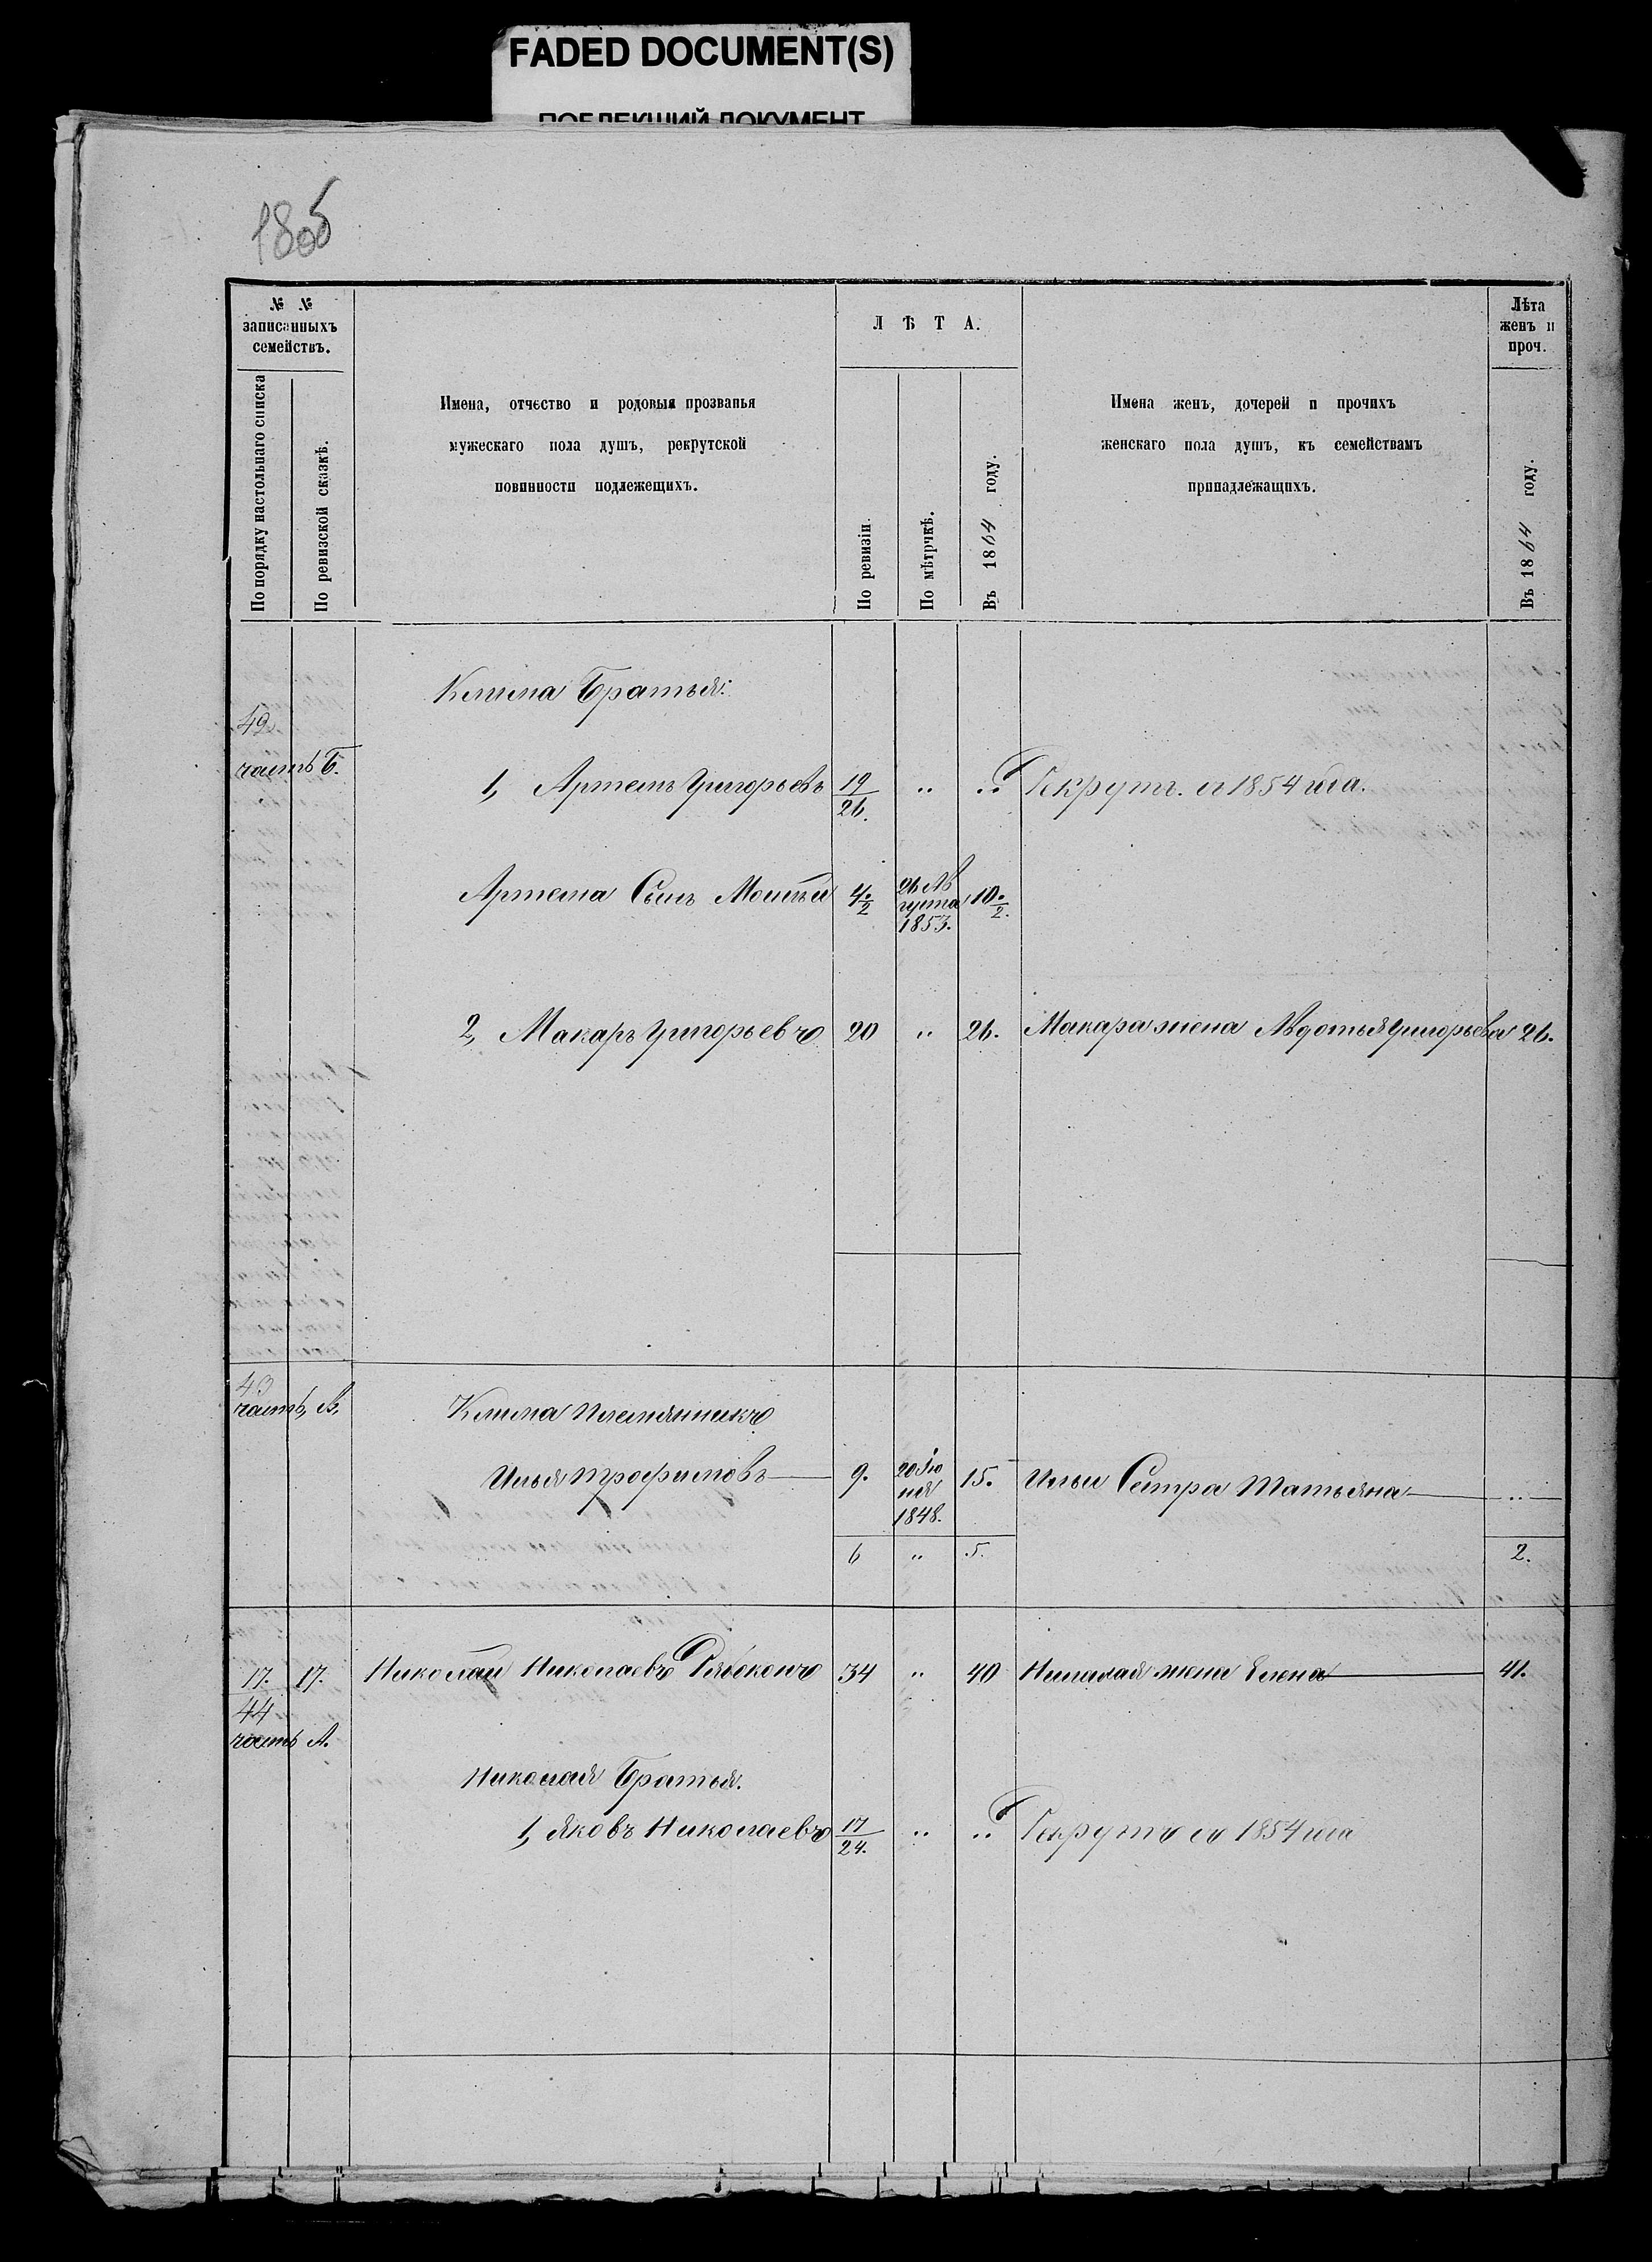 FADED DOCUMENT(S)
ПОБЛЕКШИЙ ДОКУМЕНТ
180б
№ №
записанныхъ
семействъ.
По порядку настольнаго списка
По ревизской сказкѣ.
Имена, отчество и родовыя прозванья
мужескаго пола душъ, рекрутской
повинности подлежещихъ.
ЛѢТА.
По ревизіи.
По мѣтрчкѣ.
Въ 1864 году.
Имена женъ, дочерей и прочихъ
женскаго пола душъ, къ семействамъ
принадлежащихъ.
Лѣта
женъ и
проч.
Въ 1864 году.
Клима Братья:
42
часть Б.
1, Артемъ Григорьевъ 19/26. " " Рекрутъ. съ 1854 года.
Артема Сынъ Моисей 4 0/2 26 Ав
густа 10 0/2.
1853.
2, Макаръ Григорьевъ 20 " 26. Макара жена Авдотья Григорьева 26.
43
часть, В,
Клима племянникъ
Илья Трофимовъ 9. 20 Ію 15. Ильи Сестра Татьяна "
ня
1848.
6 " 5. 2.
17. 17. Николай Николаевъ Рябоконъ 34 " 40 Николая жена Елена 41.
44
часть А.
Николая Братья.
1, Яковъ Николаевъ 17/24. " " Рекрутъ съ 1854 года